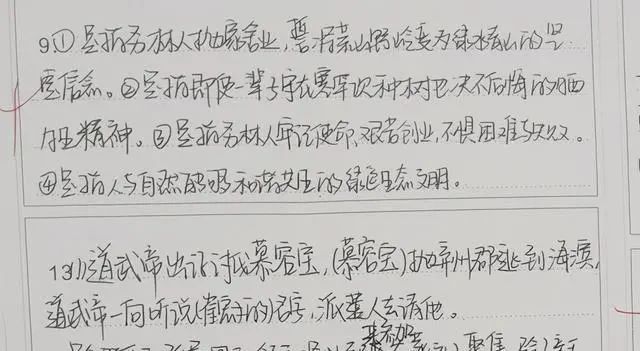 9.①是指务林人抛家舍业,誓将荒山野岭变为绿水青山的坚
定信念。②是指即使一辈子守在塞罕坝种树也决不后悔的牺
牲精神。③是指务林人牢记使命、艰苦创业,不惧困难与失败。
④是指人与自然能够和谐共生的绿色生态文明。
13(1)道武帝出征讨伐慕容宝,(慕容宝)抛弃州郡逃到海滨,
道武帝一向听说(崔宏的)名声,派人去请他。
聚集